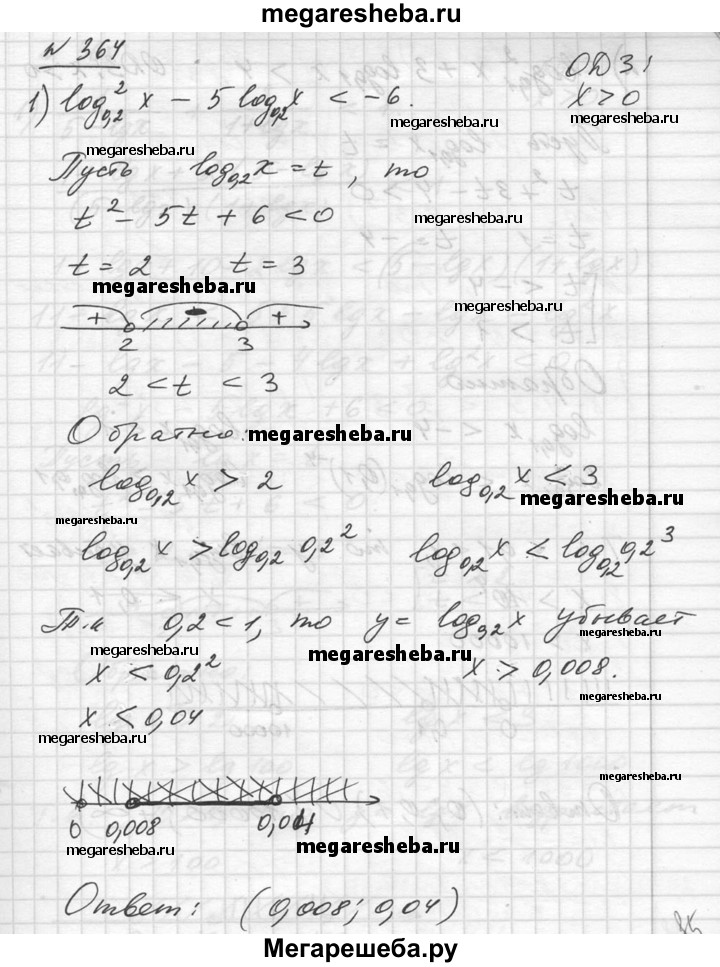 megaresheba.ru
№ 364
1) log²₀,₂ x − 5 log₀,₂ x < −6.
ОДЗ!
x > 0
megaresheba.ru
megaresheba.ru
megaresheba.ru
Пусть log₀,₂ x = t, то
t² − 5t + 6 < 0
megaresheba.ru
t = 2 t = 3
megaresheba.ru
megaresheba.ru
+ − +
2 3
2 < t < 3
Обратно: megaresheba.ru
log₀,₂ x > 2 log₀,₂ x < 3
megaresheba.ru
megaresheba.ru
log₀,₂ x > log₀,₂ 0,2² log₀,₂ x < log₀,₂ 0,2³
Т.к 0,2 < 1, то y = log₀,₂ x убывает
megaresheba.ru
megaresheba.ru
megaresheba.ru
x < 0,2² x > 0,008.
megaresheba.ru
x < 0,04
megaresheba.ru
megaresheba.ru
0 0,008 0,04
megaresheba.ru
megaresheba.ru
Ответ: (0,008; 0,04)
megaresheba.ru
Мегарешеба.ру